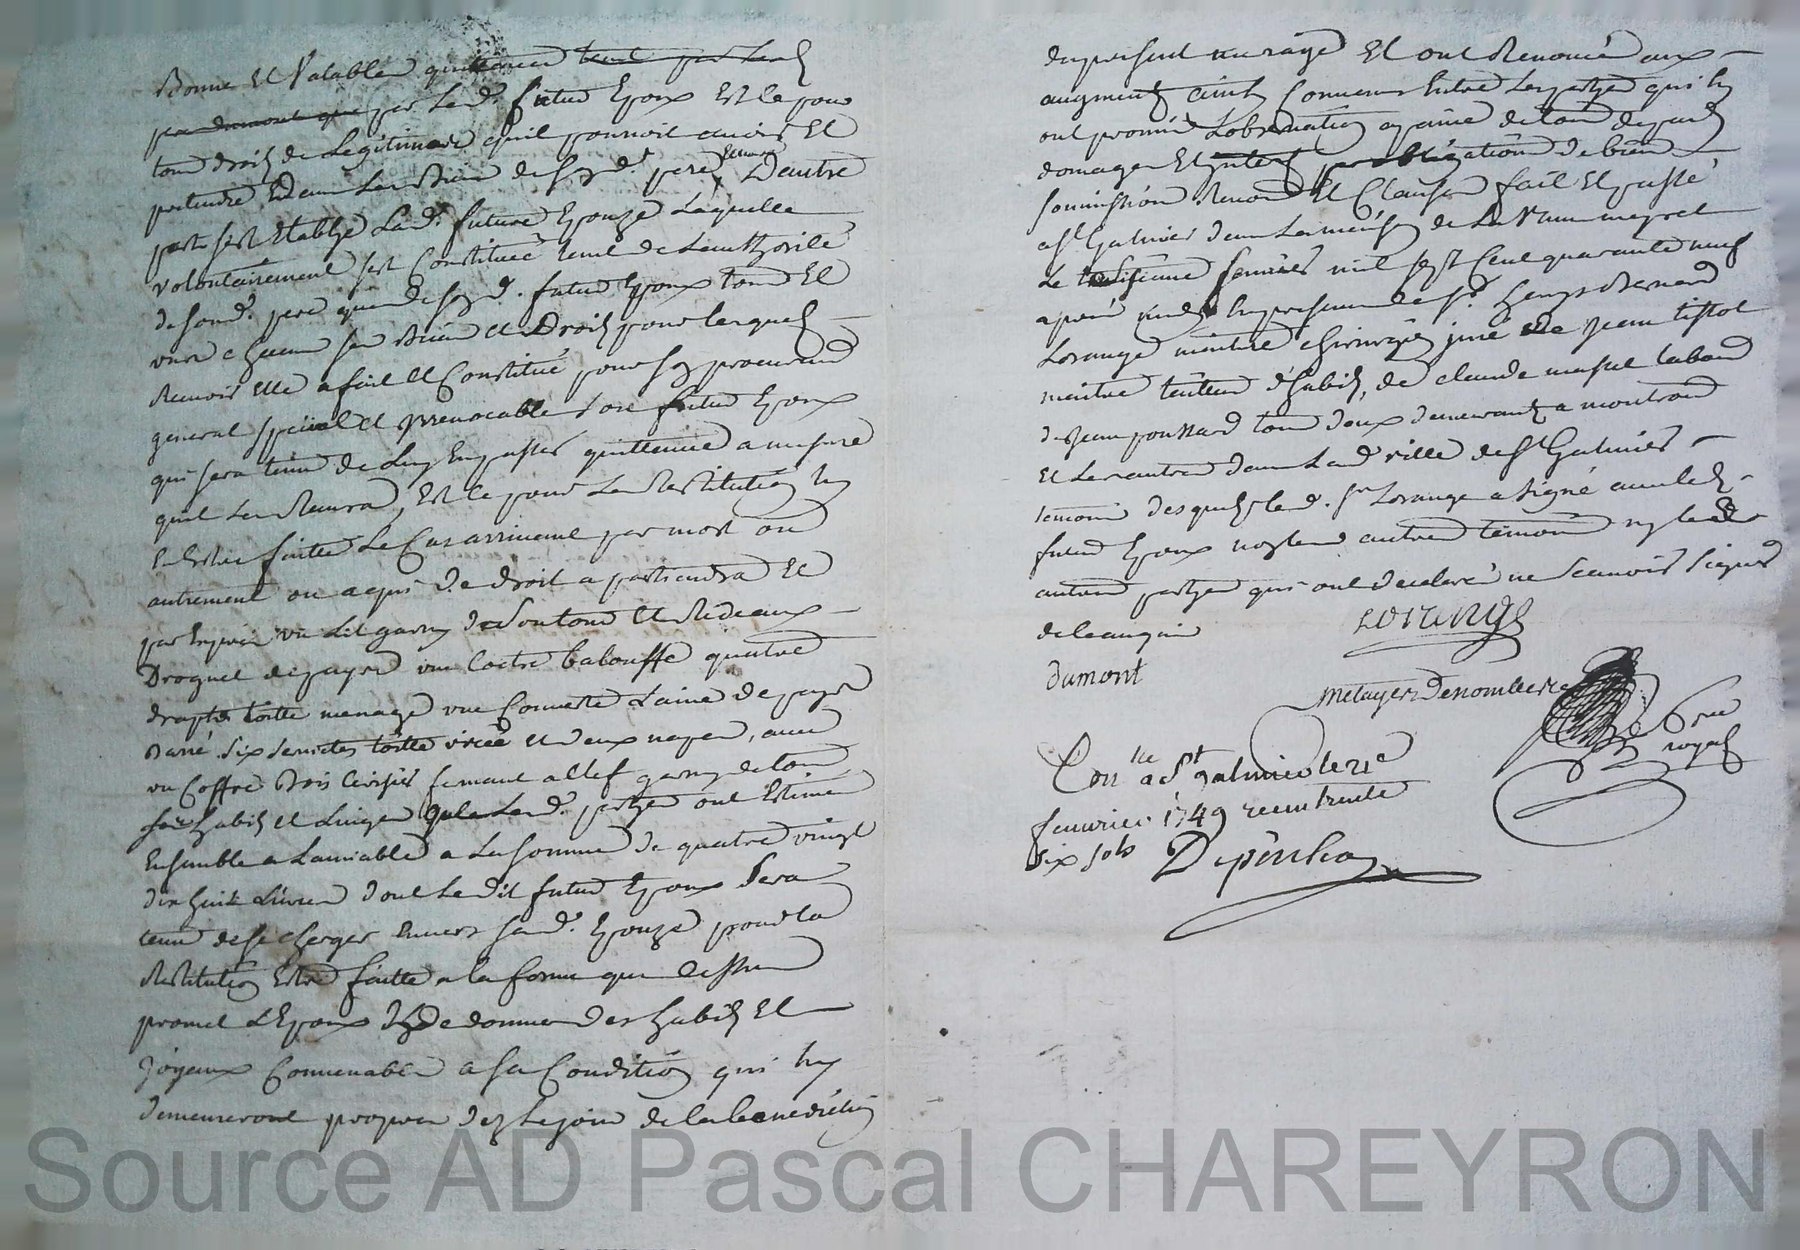 Bonne Et Valable quittance tent par Lesd
par dumont que par Led. futur Epoux Est le pour
tous droits de Legitimaire qu'il pouvoit avoir Et
pretendre Edans Les Biens de sesd. pere Et mere D'autre
part sest Etablye Lad. future Epouze Laquelle
volontairement sest Constituée tant de Lauthorité
de sond. pere que de sesd. futur Epoux tous Et
uns chacuns ses Biens et Droits pour lesquels
Recevoir Elle a fait Et Constitué pour son procureur
general special et irrevocable sond futur Epoux
qui sera tenu de Luy En passer quittance a mesure
quil Les Recevra, Est ce pour La Restitution luy
En Estre faitte Le Cas arrivant par mort ou
autrement ou a qui de droit apartiendra Et
par Exprès un Lit garny de Soutour Et Rideaux
Droguet de pays une Coetre balouffe quatre
draps toille menage une Couverte Laine de pays
Barré six serviettes toille et deux napes, avec
un Coffre Bois Cerisier fermant a Clef garny de tous
ses habits et Linges que Lesd. partyes ont Estimé
Ensemble a Lamiable a La somme de quatre vingt
dix huit Livres dont Le dit futur Epoux sera
tenu de se charger Envers sad. Epouze pour la
Restitution Estre faitte a la forme que dessus
promet L'Epoux de donner des habits Et
Joyaux Convenables a sa Condition qui luy
demeureront propres dez Le jour de la benediction
du present mariage Et ont Renoncé aux
augments ainsy Convenu Entre Les partyes qui luy
ont promis Lobservation a peine de tous depends
domages Et interests par obligation de biens
soumission Renon Et Clauses fait Et passé
a St Galmier dans La maison de La Veuve meyret
Le treizieme fevrier mil sept Cent quarante neuf
apres midy En presence de sr. henry Bernard
Lorange maitre chirurgien juré de jean tissot
maitre tailleur d'habits, de claude masse labour
de jean poussard tous deux demeurants a montrond
Et Les autres dans Lad ville de St Galmier
temoins desquels led. sr Lorange a signé avec led
futur Epoux non les autres temoins ny les
autres partyes qui ont declaré ne scavoir signer
de ce enquis
LORANGE
dumont
metayer Denombert
Con.lle a St galmier le 21e
fevrier 1749 recu trente
six sols
Depinhac
no.re
royal